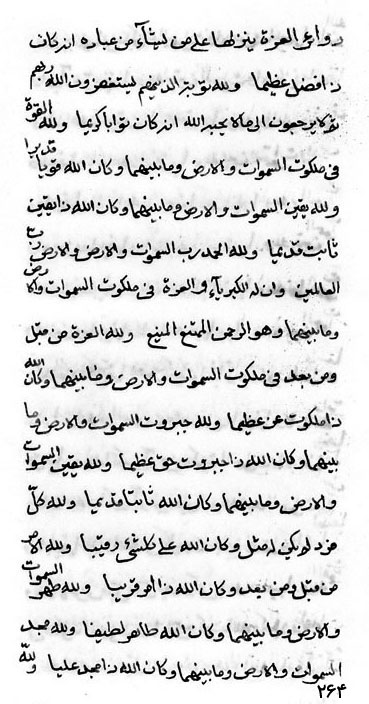 روائح العزة ينزلها على من يشآء من عباده انه كان
ذا فضل عظيما ولله توبة الذينهم يستغفرون الله ربهم
ثم لا يرجعون الى ما لا يحبه الله انه كان توابا كريما ولله القوة
فى ملكوت السموات والارض وما بينهما وكان الله قويا قديرا
ولله يقين السموات والارض وما بينهما وكان الله ذا يقين
ثابت قديما ولله الحمد رب السموات والارض والارض رب
العالمين وان له الكبريآء والعزة فى ملكوت السموات والارض
وما بينهما وهو الرحمن الممتنع المنيع ولله العزة من قبل
ومن بعد فى ملكوت السموات والارض وما بينهما وكان الله
ذا ملكوت عز عظيما ولله جبروت السموات والارض وما
بينهما وكان الله ذا جبروت حق عظيما ولله يقين السموات
والارض وما بينهما وكان الله ثابتا قديما ولله كل
فرد لم يكن له مثل وكان الله على كلشئ رقيبا ولله الامر
من قبل ومن بعد وكان الله ذا امر قريبا ولله طهر السموات
والارض وما بينهما وكان الله طاهر لطيفا ولله مجد
السموات والارض وما بينهما وكان الله ذا مجد عليا ولله
۲۶۴